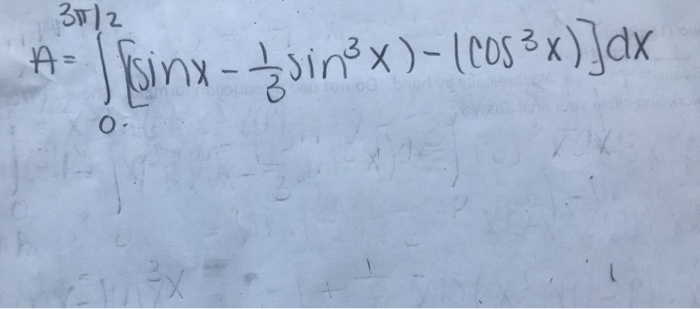 A = ∫₀^{3π/2} [(sinx - 1/3 sin³x) - (cos³x)] dx